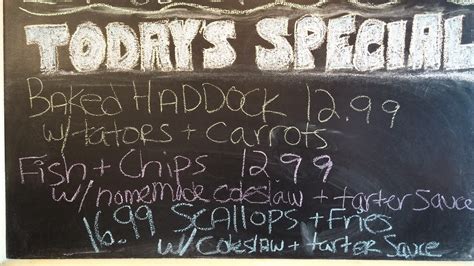 TODAY'S SPECIAL
BAKED HADDOCK 12.99
w/ tators + CARROTS
Fish + Chips 12.99
w/ homemade coleslaw + tarter sauce
16.99 Scallops + Fries
w/ Coleslaw + tarter Sauce